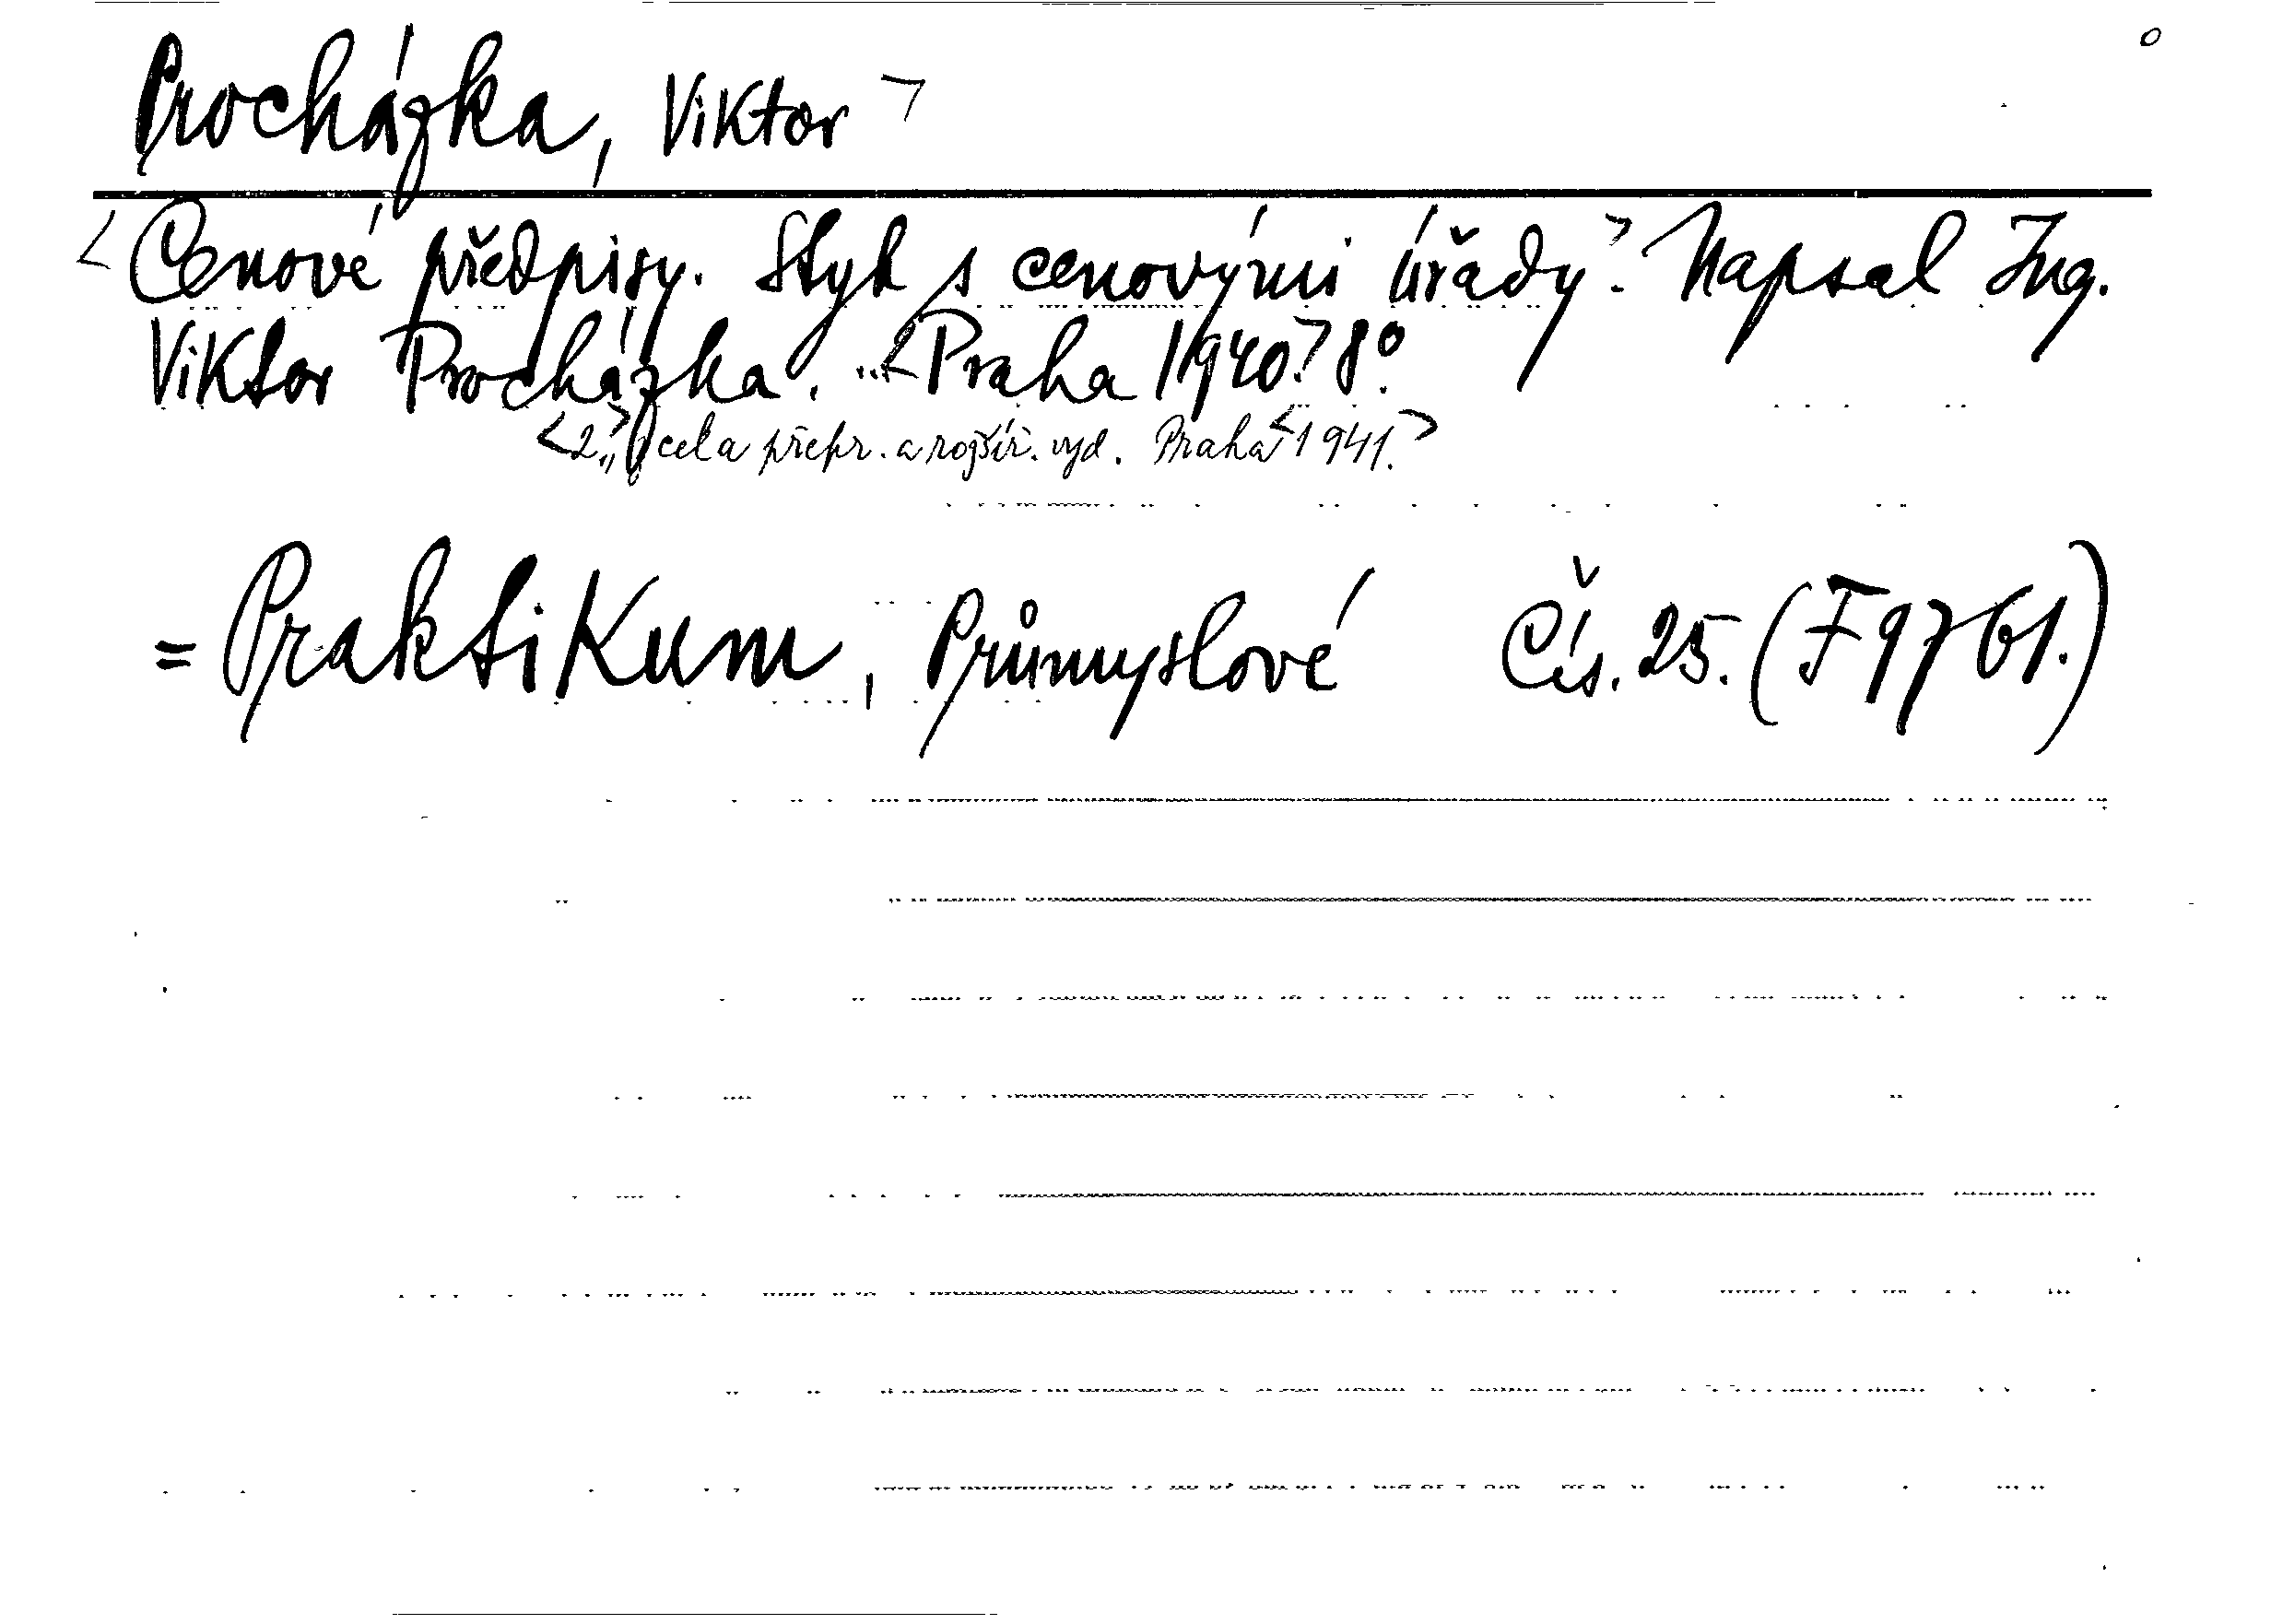 Procházka, Viktor ㄱ
<Cenové předpisy. Styk s cenovými úřady.> Napsal Ing.
Viktor Procházka. ..<Praha 1940.> 8º.
<2.,> cela přepr. a rozšíř. vyd. Praha <1941.>
= Praktikum, Průmyslové Čís. 25. (F 9761.)